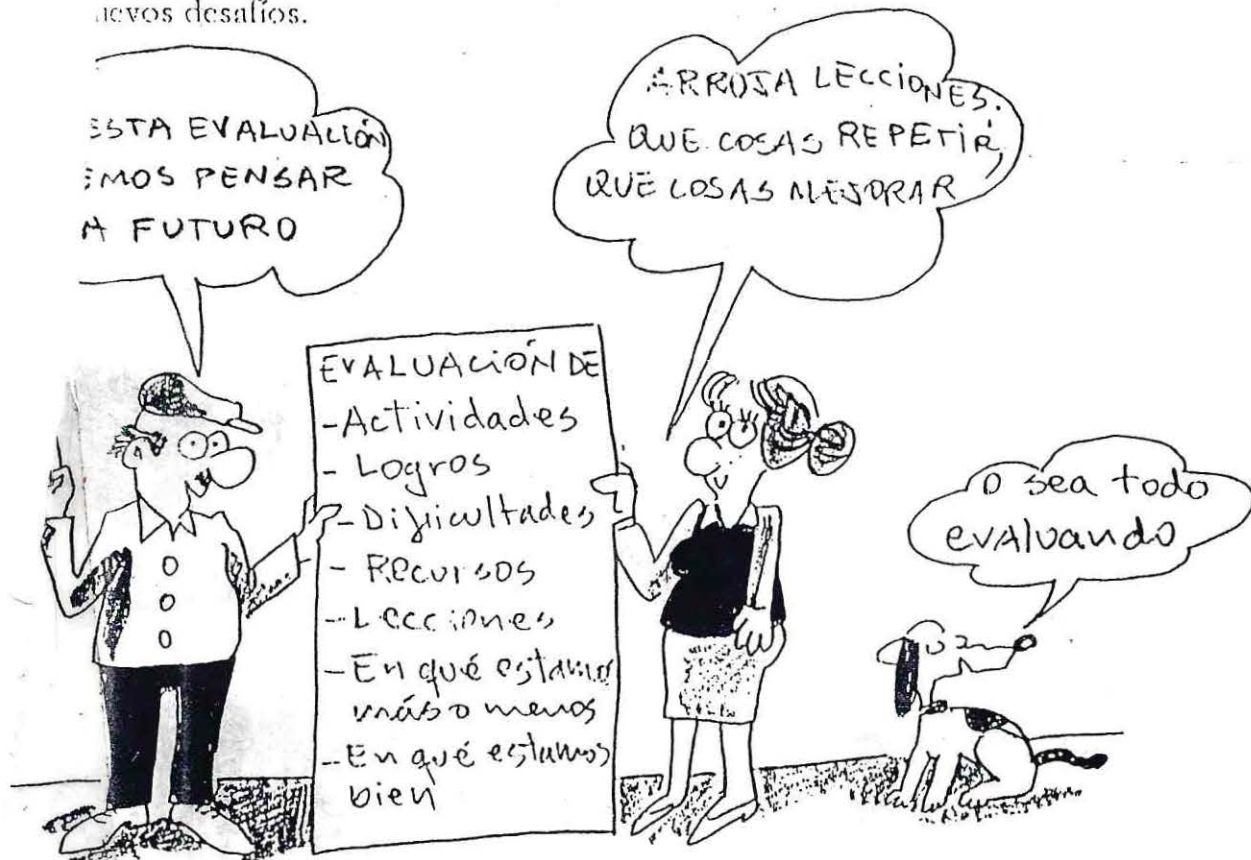 desafíos.
ESTA EVALUACIÓN
PENSAR
A FUTURO
ARROJA LECCIONES.
QUE COSAS REPETIR,
QUE COSAS MEJORAR
EVALUACIÓN DE
- Actividades
- Logros
- Dificultades
- Recursos
- Lecciones
- En qué estamos
más o menos
- En qué estamos
bien
O sea todo
evaluando